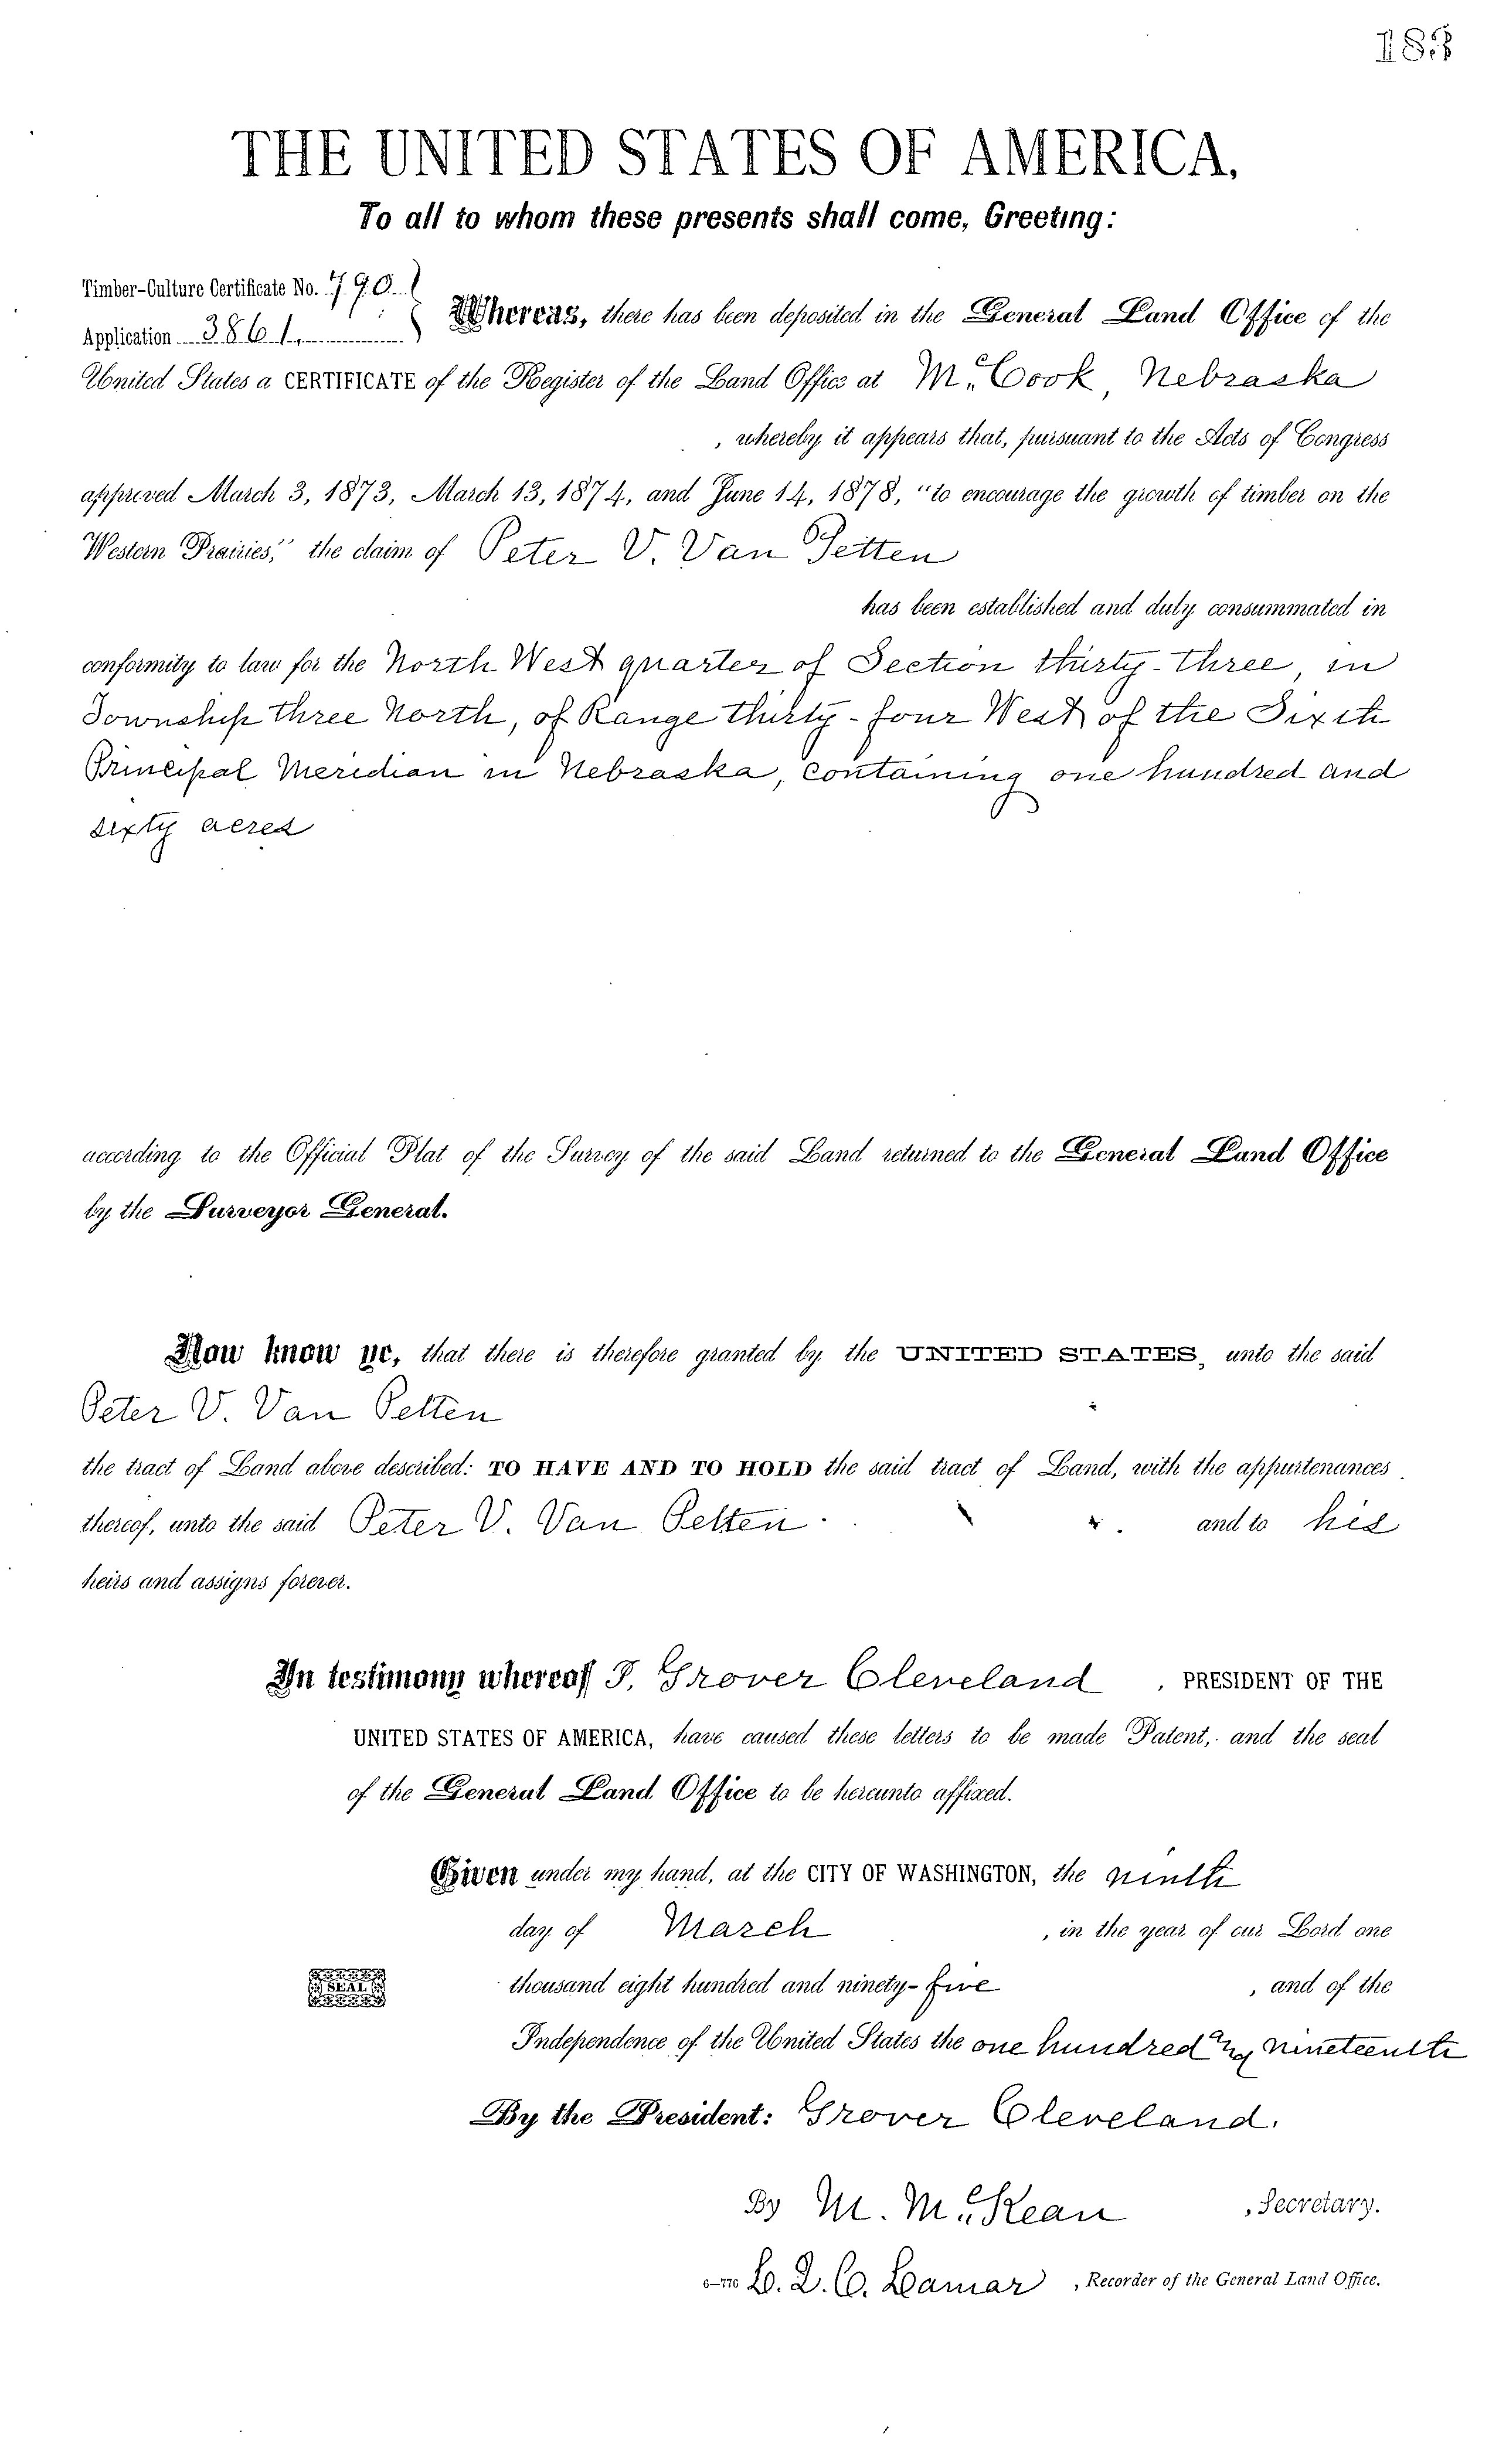 THE UNITED STATES OF AMERICA,
To all to whom these presents shall come, Greeting:
Timber-Culture Certificate No. 790
Application 3861.
Whereas, there has been deposited in the General Land Office of the
United States a CERTIFICATE of the Register of the Land Office at McCook, Nebraska
, whereby it appears that, pursuant to the Acts of Congress
approved March 3, 1873, March 13, 1874, and June 14, 1878, "to encourage the growth of timber on the
Western Prairies," the claim of Peter V. Van Petten
has been established and duly consummated in
conformity to law for the North West quarter of Section thirty-three, in
Township three North, of Range thirty-four West of the Sixth
Principal Meridian in Nebraska, containing one hundred and
sixty acres
according to the Official Plat of the Survey of the said Land returned to the General Land Office
by the Surveyor General.
Now know ye, that there is therefore granted by the UNITED STATES, unto the said
Peter V. Van Petten
the tract of Land above described: TO HAVE AND TO HOLD the said tract of Land, with the appurtenances
thereof, unto the said Peter V. Van Petten and to his
heirs and assigns forever.
In testimony whereof I, Grover Cleveland, PRESIDENT OF THE
UNITED STATES OF AMERICA, have caused these letters to be made Patent, and the seal
of the General Land Office to be hereunto affixed.
Given under my hand, at the CITY OF WASHINGTON, the ninth
day of March, in the year of our Lord one
SEAL
thousand eight hundred and ninety-five, and of the
Independence of the United States the one hundred and nineteenth
By the President: Grover Cleveland.
By M. McKean, Secretary.
6-770 L. Q. C. Lamar, Recorder of the General Land Office.